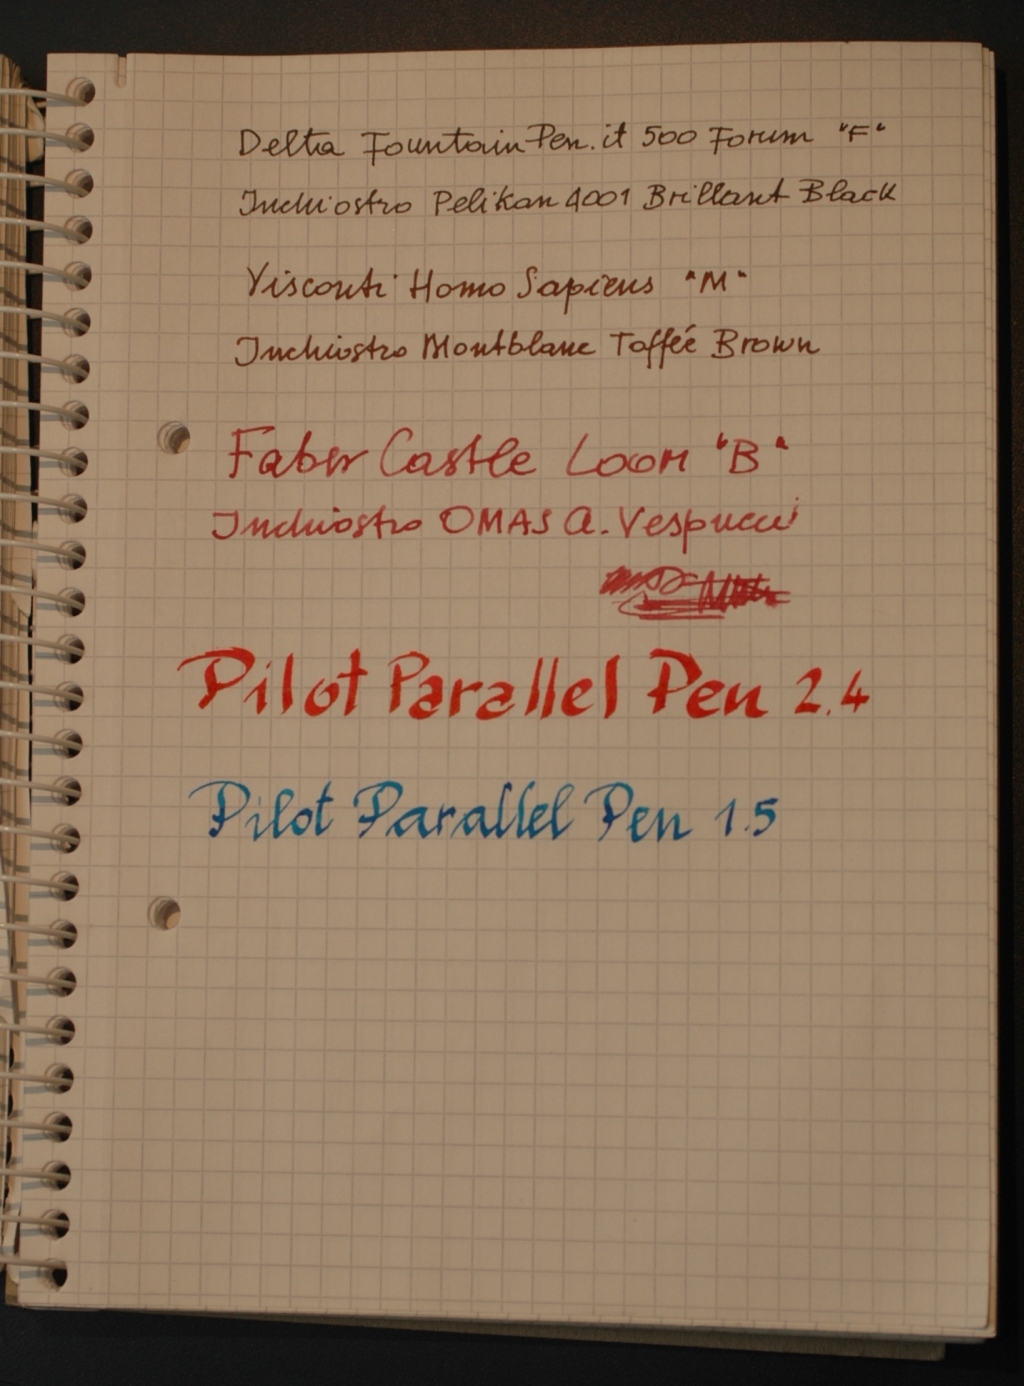 Delta FountainPen.it 500 Forum "F"
Inchiostro Pelikan 4001 Brillant Black
Visconti Homo Sapiens "M"
Inchiostro Montblanc Toffée Brown
Faber Castle Loom "B"
Inchiostro OMAS A. Vespucci
Pilot Parallel Pen 2.4
Pilot Parallel Pen 1.5